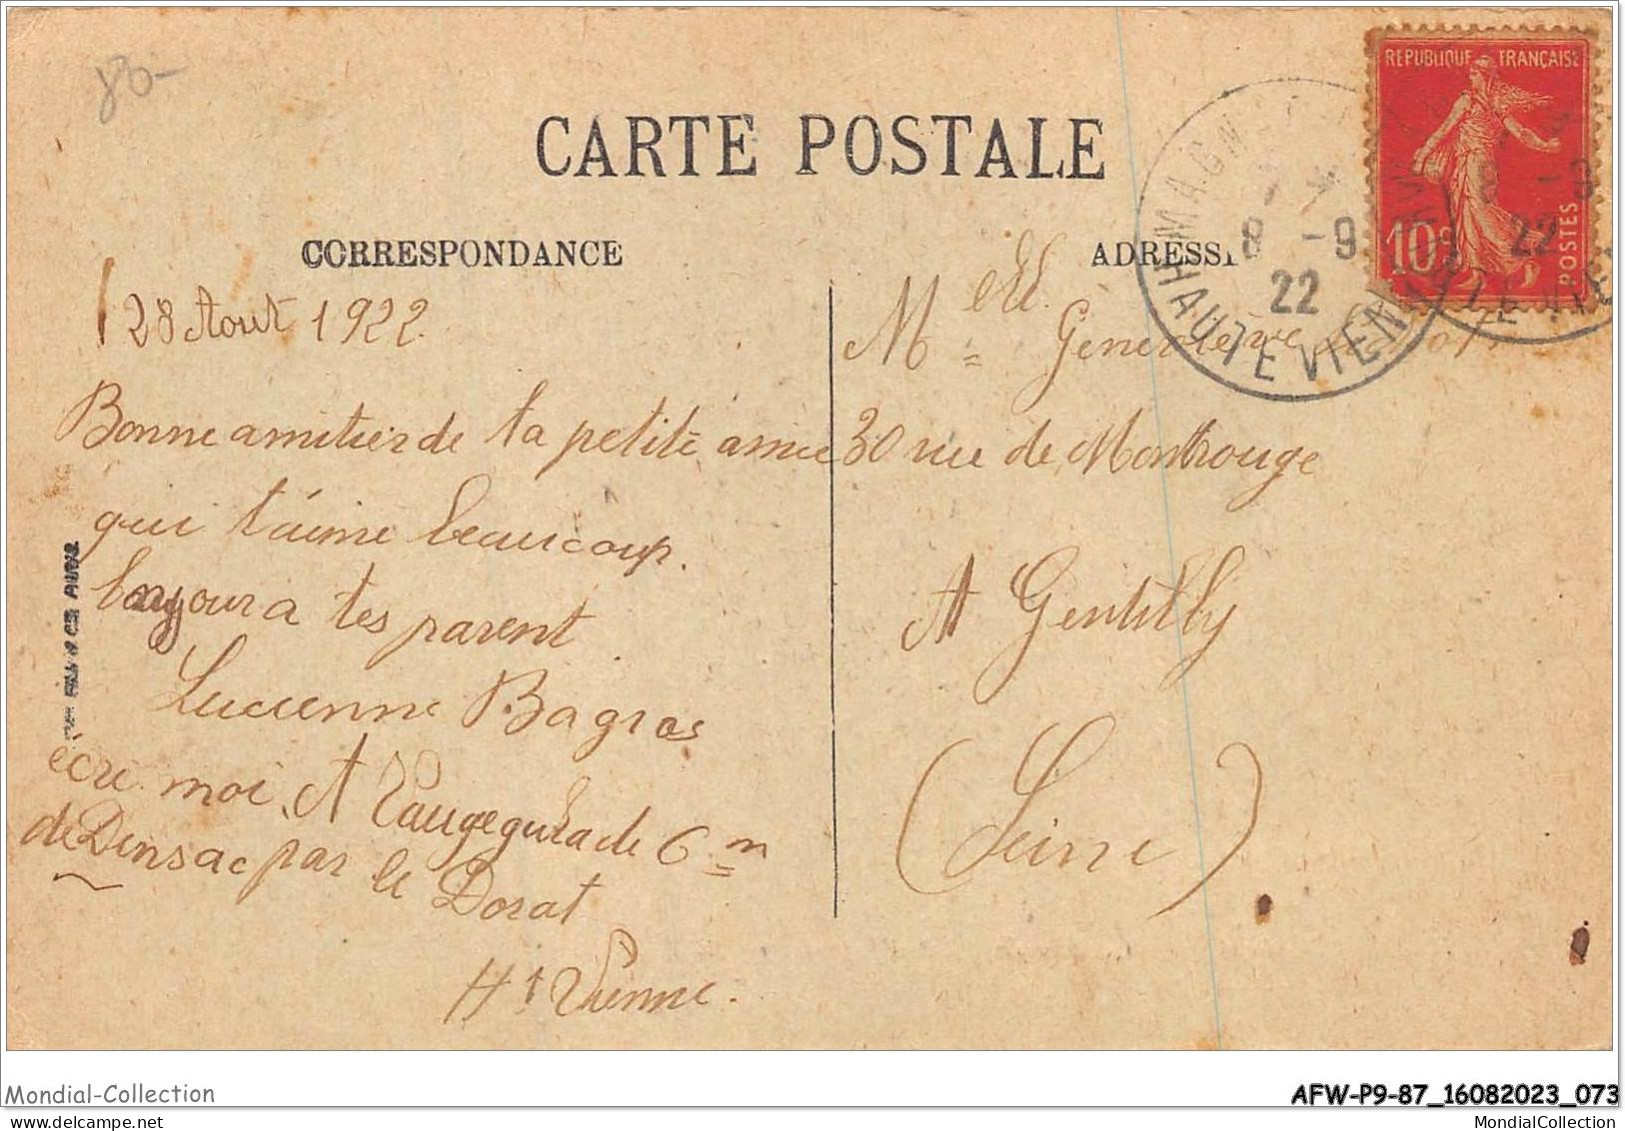 80-
CARTE POSTALE
CORRESPONDANCE
ADRESSE
REPUBLIQUE FRANÇAISE
10c
POSTES
MAGN
8 -9
22
HAUTE VIENNE
8 -9
22
28 Aout 1922.
Bonne amitier de ta petite amie
qui t'aime beaucoup.
bonjour a tes parent
Lucienne Bagros
écri moi. A
de Dinsac par le Dorat
Ht Vienne.
Melle Geneviève
30 rue de Montrouge
A Gentilly
(Seine)
Mondial-Collection
AFW-P9-87_16082023_073
MondialCollection